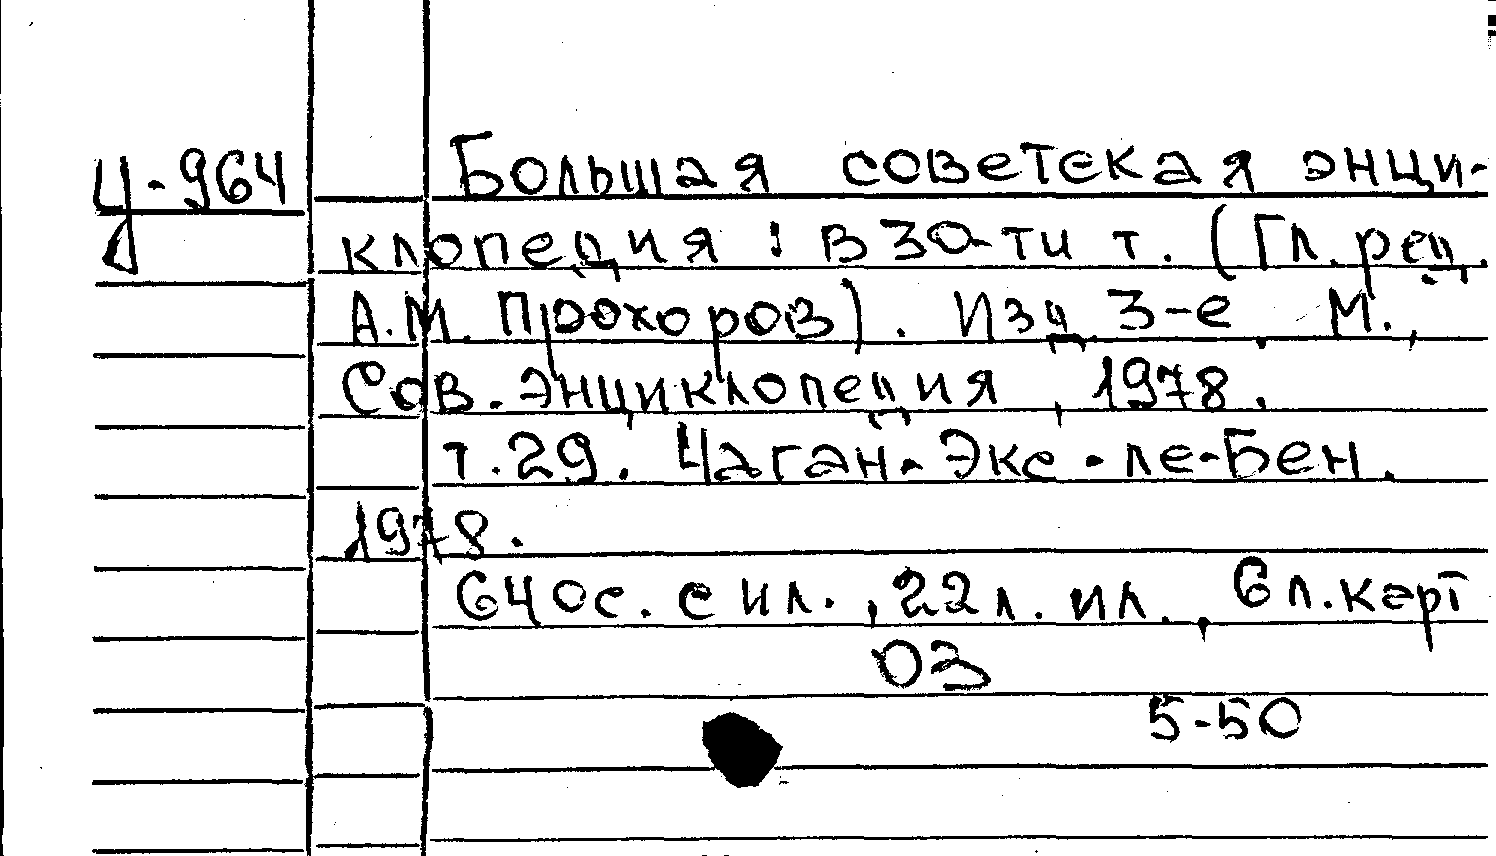 Ц-964 Большая советская энци-
клопедия : в 30-ти т. (Гл. ред.
А.М. Прохоров). Изд. 3-е. М.,
Сов. энциклопедия, 1978.
т. 29. Чаган - Экс-ле-Бен.
1978.
640с. с ил., 22 л. ил., 6 л. карт
03
5-50